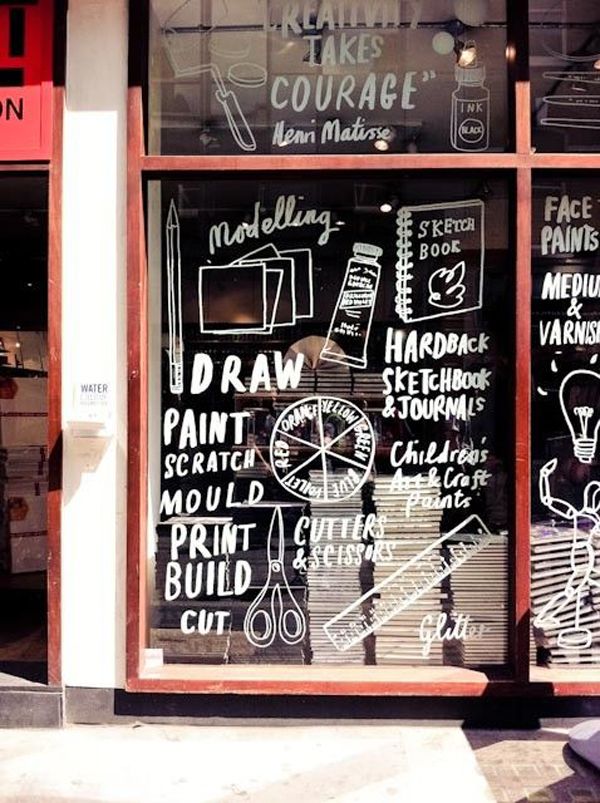 CREATIVITY
TAKES
COURAGE"
Henri Matisse
INK
BLACK
N
Modelling
SKETCH
BOOK
DRAW
PAINT
SCRATCH
MOULD
PRINT
BUILD
CUT
RED ORANGE YELLOW GREEN BLUE VIOLET
HARDBACK
SKETCHBOOK
& JOURNALS
Children's
Art & Craft
Paints
CUTTERS
& SCISSORS
Glitter
FACE
PAINTS
MEDIU
&
VARNISH
WATER